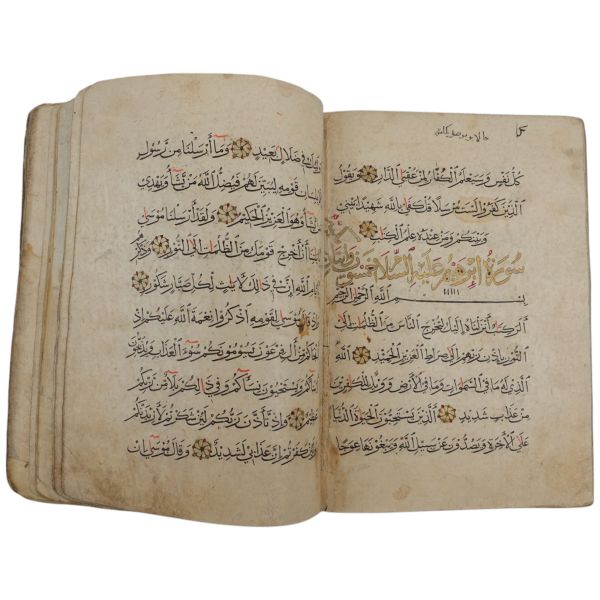 كل نفس وسيعلم الكفار لمن عقبى الدار ويقول
الذين كفروا لست مرسلا قل كفى بالله شهيدا بيني
وبينكم ومن عنده علم الكتاب
سورة ابرهيم عليه السلام خمسون
بسم الله الرحمن الرحيم
الر كتاب انزلناه اليك لتخرج الناس من الظلمات الى
النور باذن ربهم الى صراط العزيز الحميد الله
الذي له ما في السموات وما في الارض وويل للكافرين
من عذاب شديد الذين يستحبون الحيوة الدنيا
على الاخرة ويصدون عن سبيل الله ويبغونها عوجا
في ضلال بعيد وما أرسلنا من رسول
بلسان قومه ليبين لهم فيضل الله من يشاء ويهدي
يشاء وهو العزيز الحكيم ولقد أرسلنا موسى
أن أخرج قومك من الظلمات إلى النور وذكرهم
بايام الله إن في ذلك لايات لكل صبار شكور
قال موسى لقومه اذكروا نعمة الله عليكم إذ
من آل فرعون يسومونكم سوء العذاب
ويستحيون نساءكم وفي ذلكم بلاء من ربكم
عظيم وإذ تأذن ربكم لئن شكرتم لأزيدنكم
كفرتم إن عذابي لشديد وقال موسى إن